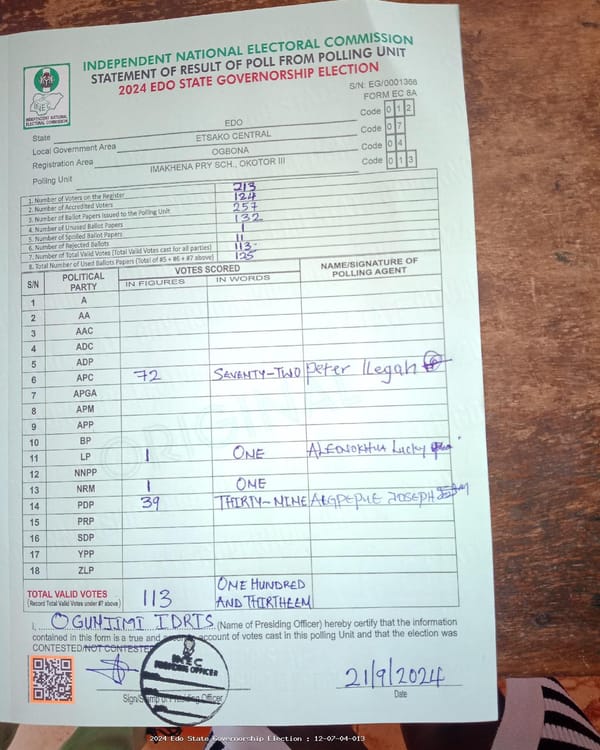 INDEPENDENT NATIONAL ELECTORAL COMMISSION
STATEMENT OF RESULT OF POLL FROM POLLING UNIT
2024 EDO STATE GOVERNORSHIP ELECTION
INEC
INDEPENDENT NATIONAL
ELECTORAL COMMISSION
S/N: EG/0001368
FORM EC 8A
State EDO Code 0 1 2
Local Government Area ETSAKO CENTRAL Code 0 7
Registration Area OGBONA Code 0 4
Polling Unit IMAKHENA PRY SCH., OKOTOR III Code 0 1 3
1. Number of Voters on the Register 213
2. Number of Accredited Voters 124
3. Number of Ballot Papers Issued to the Polling Unit 257
4. Number of Unused Ballot Papers 132
5. Number of Spoiled Ballot Papers 1
6. Number of Rejected Ballots 11
7. Number of Total Valid Votes (Total Valid Votes cast for all parties) 113
8. Total Number of Used Ballots Papers (Total of #5 + #6 + #7 above) 125
S/N POLITICAL PARTY VOTES SCORED NAME/SIGNATURE OF POLLING AGENT
IN FIGURES IN WORDS
1 A
2 AA
3 AAC
4 ADC
5 ADP
6 APC 72 SEVENTY-TWO Peter Ilegah
7 APGA
8 APM
9 APP
10 BP
11 LP 1 ONE Lucky
12 NNPP
13 NRM 1 ONE
14 PDP 39 THIRTY-NINE JOSEPH
15 PRP
16 SDP
17 YPP
18 ZLP
TOTAL VALID VOTES 113 ONE HUNDRED
(Record Total Valid Votes under #7 above) AND THIRTHEEM
I, OGUNJIMI IDRIS (Name of Presiding Officer) hereby certify that the information
contained in this form is a true and account of votes cast in this polling Unit and that the election was
CONTESTED/NOT CONTESTED
INEC
PRESIDING OFFICER
21/9/2024
Sign/Stamp of Presiding Officer Date
2024 Edo State Governorship Election : 12-07-04-013